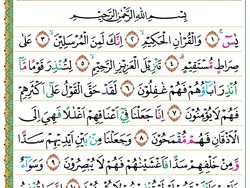 بِسْمِ اللَّهِ الرَّحْمَٰنِ الرَّحِيمِ
يسٓ ۝١ وَالْقُرْآنِ الْحَكِيمِ ۝٢ إِنَّكَ لَمِنَ الْمُرْسَلِينَ ۝٣ عَلَىٰ
صِرَاطٍ مُسْتَقِيمٍ ۝٤ تَنْزِيلَ الْعَزِيزِ الرَّحِيمِ ۝٥ لِتُنْذِرَ قَوْمًا مَا
أُنْذِرَ آبَاؤُهُمْ فَهُمْ غَافِلُونَ ۝٦ لَقَدْ حَقَّ الْقَوْلُ عَلَىٰ أَكْثَرِهِمْ
فَهُمْ لَا يُؤْمِنُونَ ۝٧ إِنَّا جَعَلْنَا فِي أَعْنَاقِهِمْ أَغْلَالًا فَهِيَ إِلَى
الْأَذْقَانِ فَهُمْ مُقْمَحُونَ ۝٨ وَجَعَلْنَا مِنْ بَيْنِ أَيْدِيهِمْ سَدًّا
وَمِنْ خَلْفِهِمْ سَدًّا فَأَغْشَيْنَاهُمْ فَهُمْ لَا يُبْصِرُونَ ۝٩ وَسَوَاءٌ